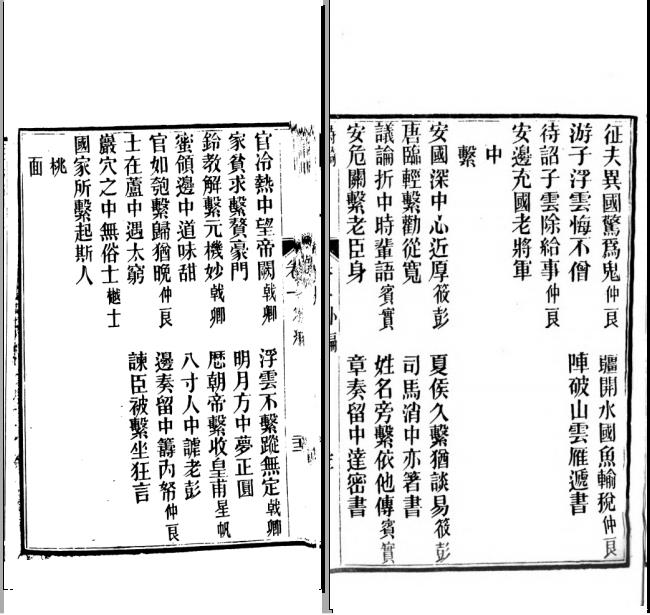 征夫異國驚爲鬼仲良　疆開水國魚輸稅仲良
游子浮雲悔不僧　陣破山雲雁遞書
待詔子雲除給事仲良
安邊充國老將軍
中
繫
安國深中心近厚筱彭　夏侯久繫猶談易筱彭
唐臨輕繫勸從寬　司馬消中亦著書
議論折中時輩語賓實　姓名旁繫依他傳賓實
安危關繫老臣身　章奏留中達密書
官冷熱中望帝闕戟卿　浮雲不繫蹤無定戟卿
家貧求繫贅豪門　明月方中夢正圓
鈴教解繫元機妙戟卿　歷朝帝繫收皇甫星帆
蜜領邊中道味甜　八寸人中謔老彭
官如匏繫歸猶晚仲良　邊奏留中籌丙帑仲良
士在蘆中遇太窮　諫臣被繫坐狂言
巖穴之中無俗士樾士
國家所繫起斯人
桃
面